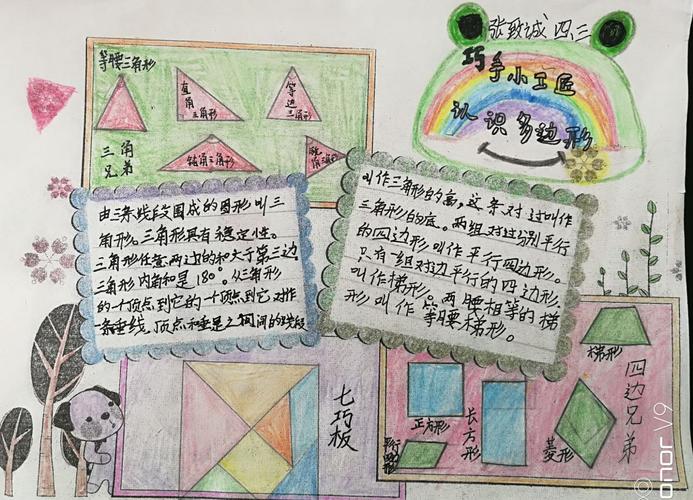 张致诚 四.三
巧手小工匠
认识多边形
等腰三角形
直角三角形
等边三角形
三角
兄弟
钝角三角形
锐角三角形
由三条线段围成的图形叫三
角形。三角形具有稳定性。
三角形任意两边的和大于第三边
三角形内角和是180°。从三角形
的一个顶点到它的一个顶点到它对作
一条垂线,顶点和垂足之间间的线段
叫作三角形的高,这条对边叫作
三角形的底。两组对边分别平行
的四边形叫作平行四边形。
只有一组对边平行的四边形
叫作梯形,两腰相等的梯
形叫作等腰梯形。
七巧板
梯形
四边兄弟
正方形
长方形
菱形
平行四边形
onor V9